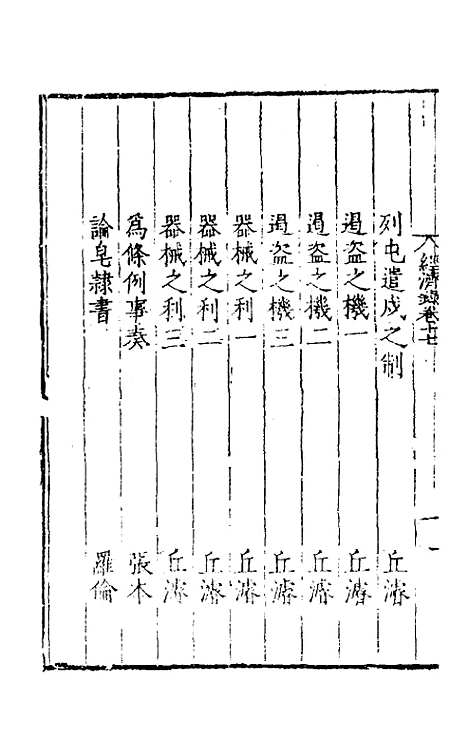 經濟錄卷十七
列屯遣戍之制 丘濬
遏盜之機一 丘濬
遏盜之機二 丘濬
遏盜之機三 丘濬
器械之利一 丘濬
器械之利二 丘濬
器械之利三 丘濬
爲條例事奏 張本
論皂隸書 羅倫